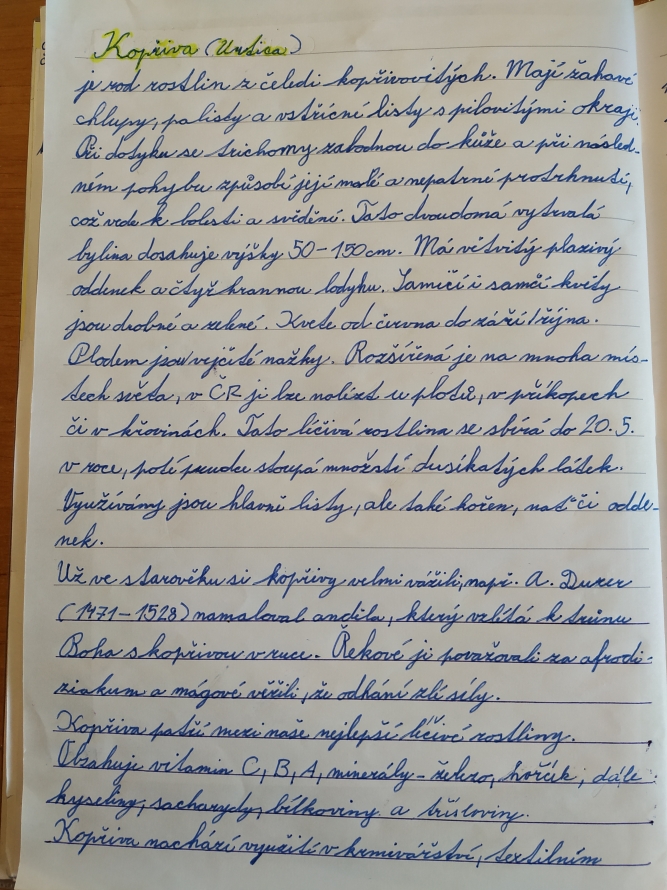 Kopřiva (Urtica)
je rod rostlin z čeledi kopřivovitých. Mají žahavé
chlupy, palisty a vstřícné listy s pilovitými okraji.
Při dotyku se trichomy zabodnou do kůže a při násled-
ném pohybu způsobí její malé a nepatrné protrhnutí,
což vede k bolesti a svědění. Tato dvoudomá vytrvalá
bylina dosahuje výšky 50-150cm. Má větvitý plazivý
oddenek a čtyřhrannou lodyhu. Samičí i samčí květy
jsou drobné a zelené. Kvete od června do září/října.
Plodem jsou vejčité nažky. Rozšířená je na mnoha mís-
tech světa, v ČR ji lze nalézt u plotů, v příkopech
či v křovinách. Tato léčivá rostlina se sbírá do 20.5.
v roce, poté prudce stoupá množství dusíkatých látek.
Využívány jsou hlavně listy, ale také kořen, nať či odde-
nek.
Už ve starověku si kopřivy velmi vážili, např. A. Durer
(1471-1528) namaloval anděla, který vzlítá k trůnu
Boha s kopřivou v ruce. Řekové ji považovali za afrodi-
ziakum a mágové věřili, že odhání zlé síly.
Kopřiva patří mezi naše nejlepší léčivé rostliny.
Obsahuje vitamin C, B, A, minerály - železo, hořčík, dále
kyseliny, sacharydy, bílkoviny a třísloviny.
Kopřiva nachází využití v krmivářství, textilním